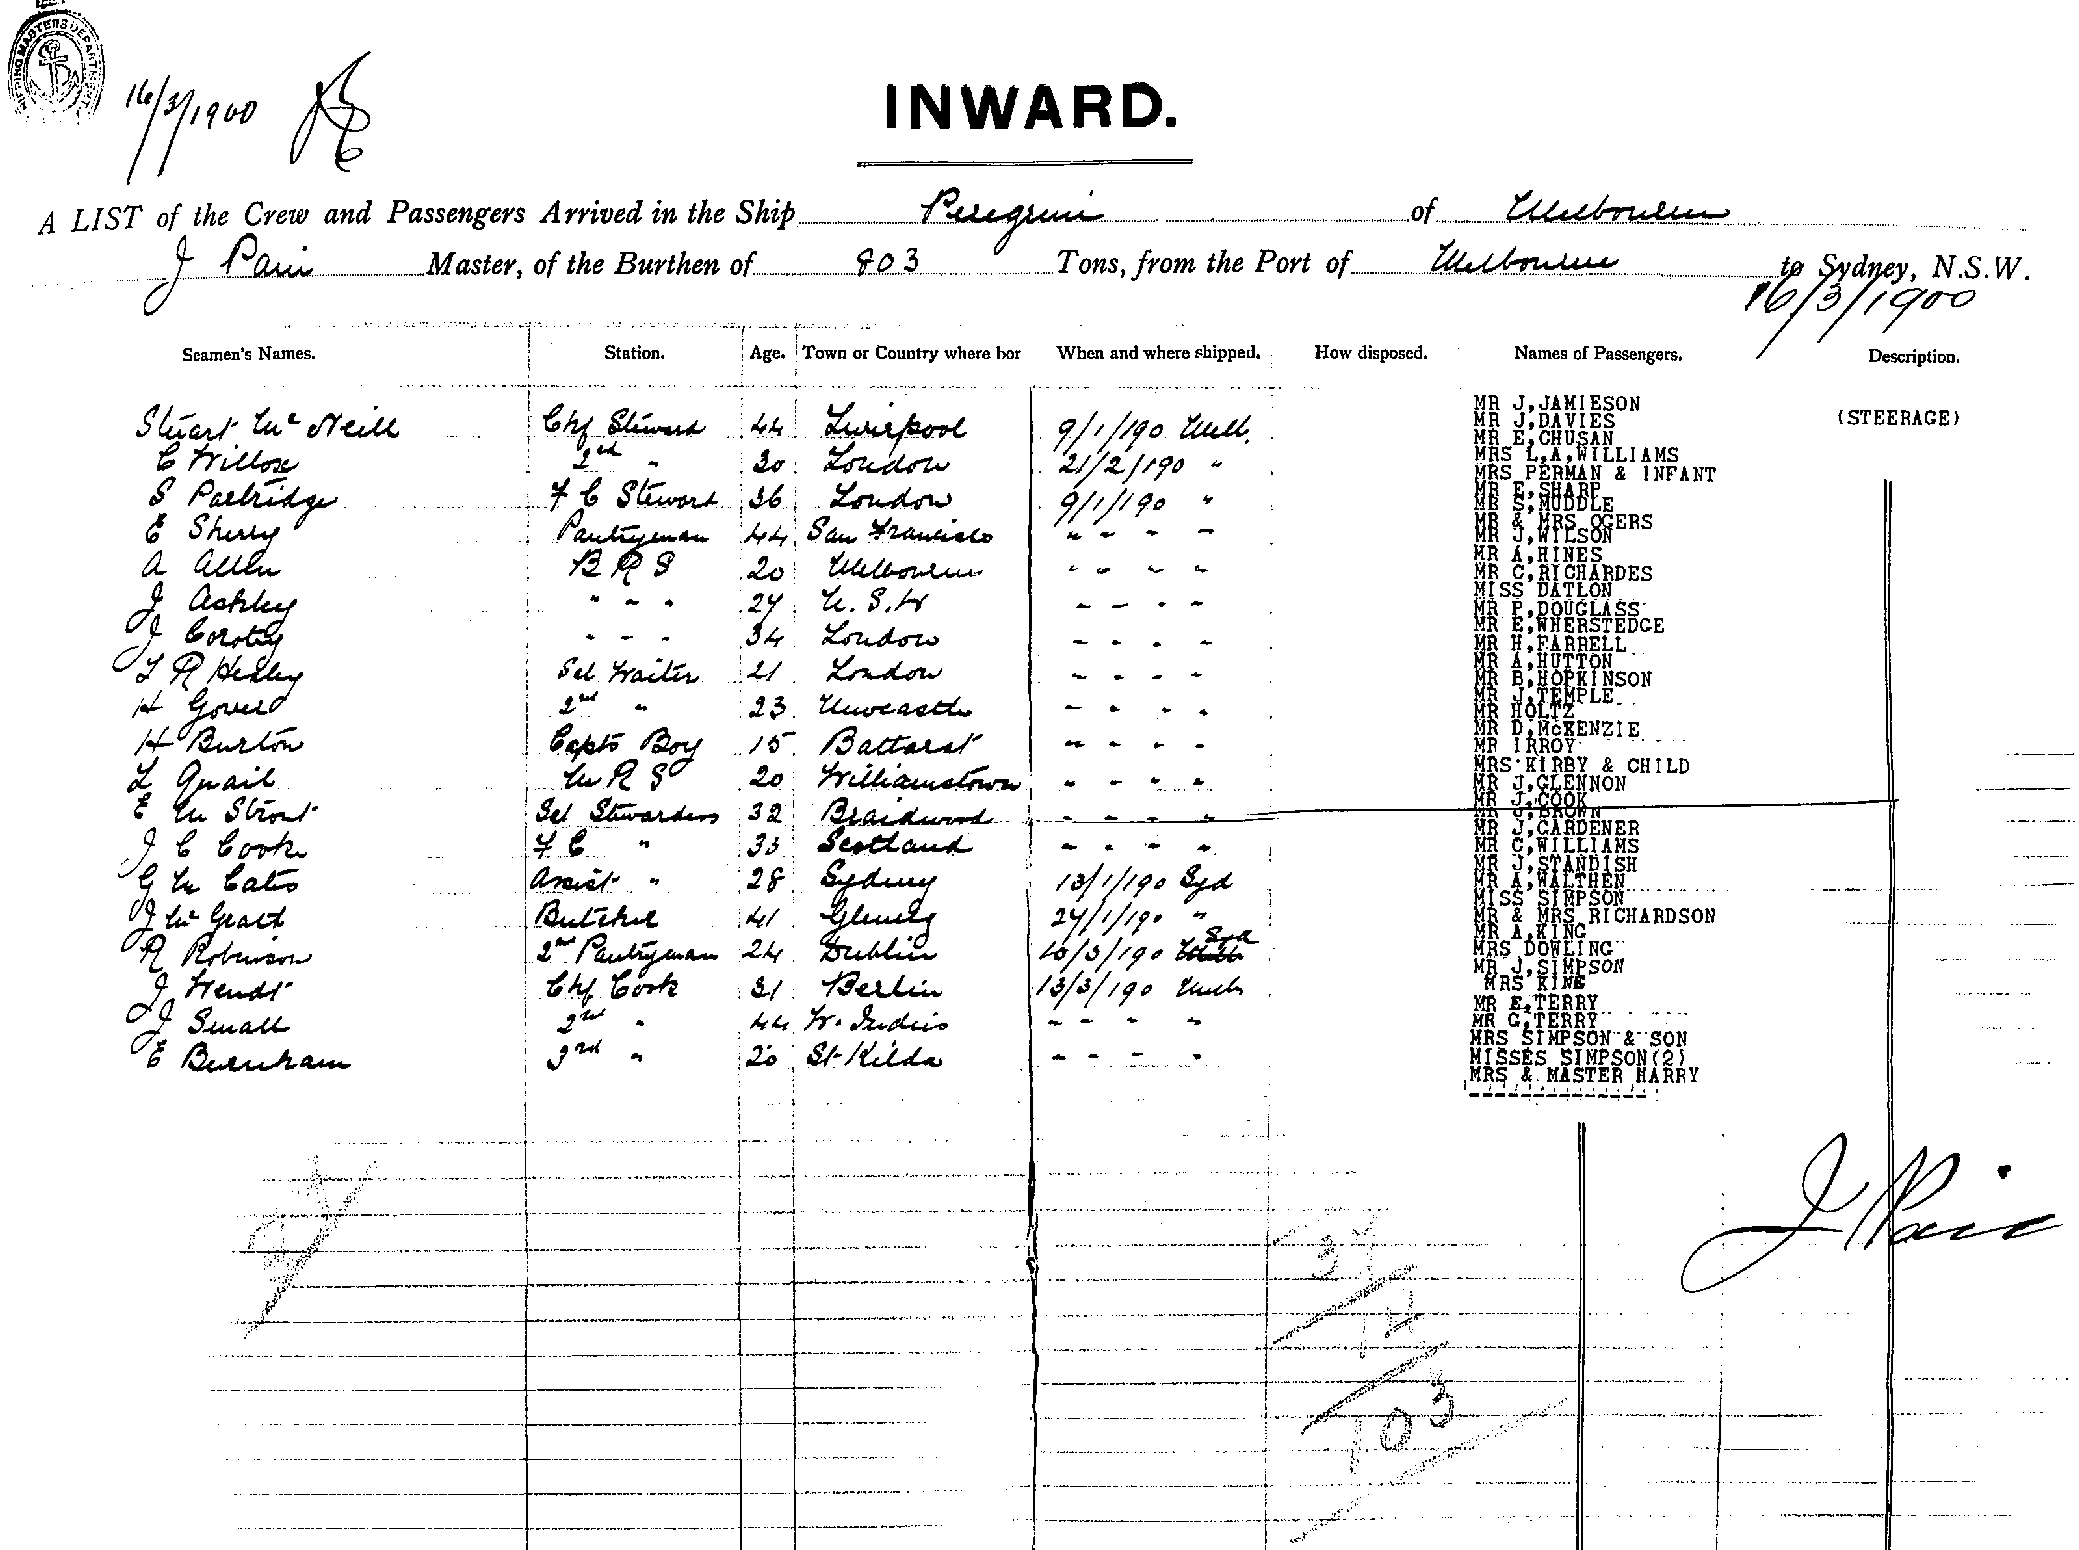 SHIPPING MASTERS DEPARTMENT
16/3/1900
INWARD.
A LIST of the Crew and Passengers Arrived in the Ship Peregrine of Melbourne
J Pain Master, of the Burthen of 803 Tons, from the Port of Melbourne to Sydney, N.S.W.
16/3/1900
Seamen's Names. Station. Age. Town or Country where bor When and where shipped. How disposed. Names of Passengers. Description.
Stuart Mc Neill Chf Steward 44 Liverpool 9/1/190 Melb.
C Willox 2nd " 30 London 21/2/190 "
S Partridge F C Stewart 36 London 9/1/190 "
E Sherry Pantryman 44 San Francisco " " " "
A Allen B R S 20 Melbourne " " " "
J Ashley " " " 27 N.S.W " " " "
J " " " 34 London " " " "
L R Henley Sel Waiter 21 London " " " "
H Gover 2nd " 23 Newcastle " " " "
H Burton Capts Boy 15 Ballarat " " " "
L Quail M R S 20 Williamstown " " " "
E M Strout Sel Stewardess 32 Braidwood " " " "
J C Cooke F C " 33 Scotland " " " "
G M Cates Assist " 28 Sydney 13/1/190 Syd
J Mc Grath Butcher 41 Glenelg 24/1/190 "
R Robinson 2nd Pantryman 24 Dublin 10/3/190 Syd
J Wendt Chf Cook 31 Berlin 13/3/190 Melb
J Small 2nd " 44 W. Indies " " " "
E Burnham 3rd " 20 St Kilda " " " "
MR J,JAMIESON
MR J,DAVIES (STEERAGE)
MR E,CHUSAN
MRS L,A,WILLIAMS
MRS PERMAN & INFANT
MR E,SHARP
MR S,MUDDLE
MR & MRS OGERS
MR J,WILSON
MR A,HINES
MR C,RICHARDES
MISS DATLON
MR P,DOUGLASS
MR E,WHERSTEDGE
MR H,FARRELL
MR A,HUTTON
MR B,HOPKINSON
MR J,TEMPLE
MR HOLTZ
MR D,McKENZIE
MR IRROY
MRS KIRBY & CHILD
MR J,GLENNON
MR J,COOK
MR J,BROWN
MR J,GARDENER
MR C,WILLIAMS
MR J,STANDISH
MR A,WALTHEN
MISS SIMPSON
MR & MRS RICHARDSON
MR A,KING
MRS DOWLING
MR J,SIMPSON
MRS KING
MR E,TERRY
MR G,TERRY
MRS SIMPSON & SON
MISSES SIMPSON(2)
MRS & MASTER HARRY
J Pain
103